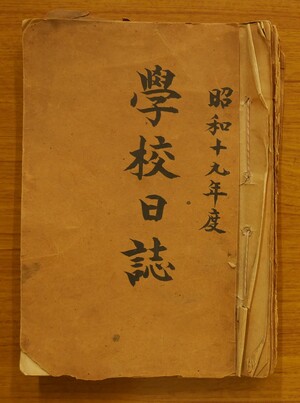 昭和十九年度
學校日誌